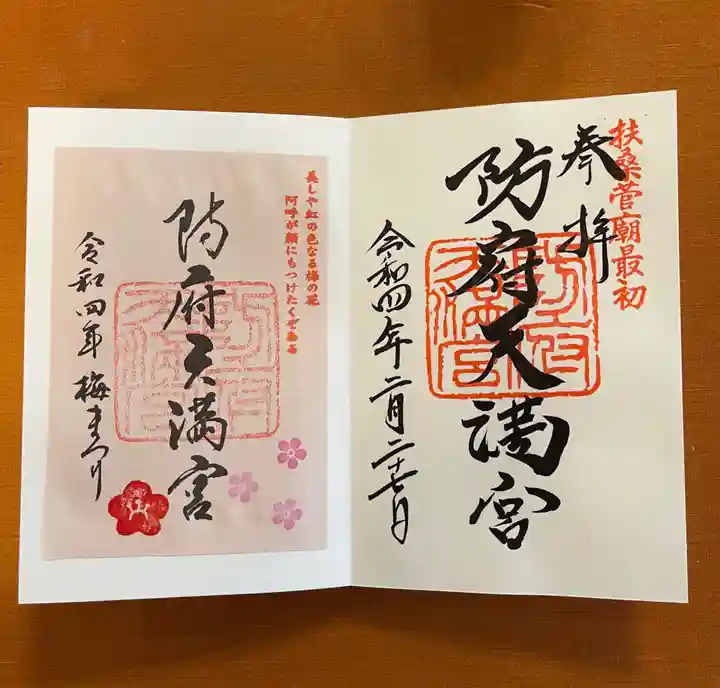 扶桑菅廟最初
奉拝
防府天満宮
令和四年二月二十七日
美しや紅の色なる梅の花
阿呼が顔にもつけたくぞある
防府天満宮
令和四年 梅まつり